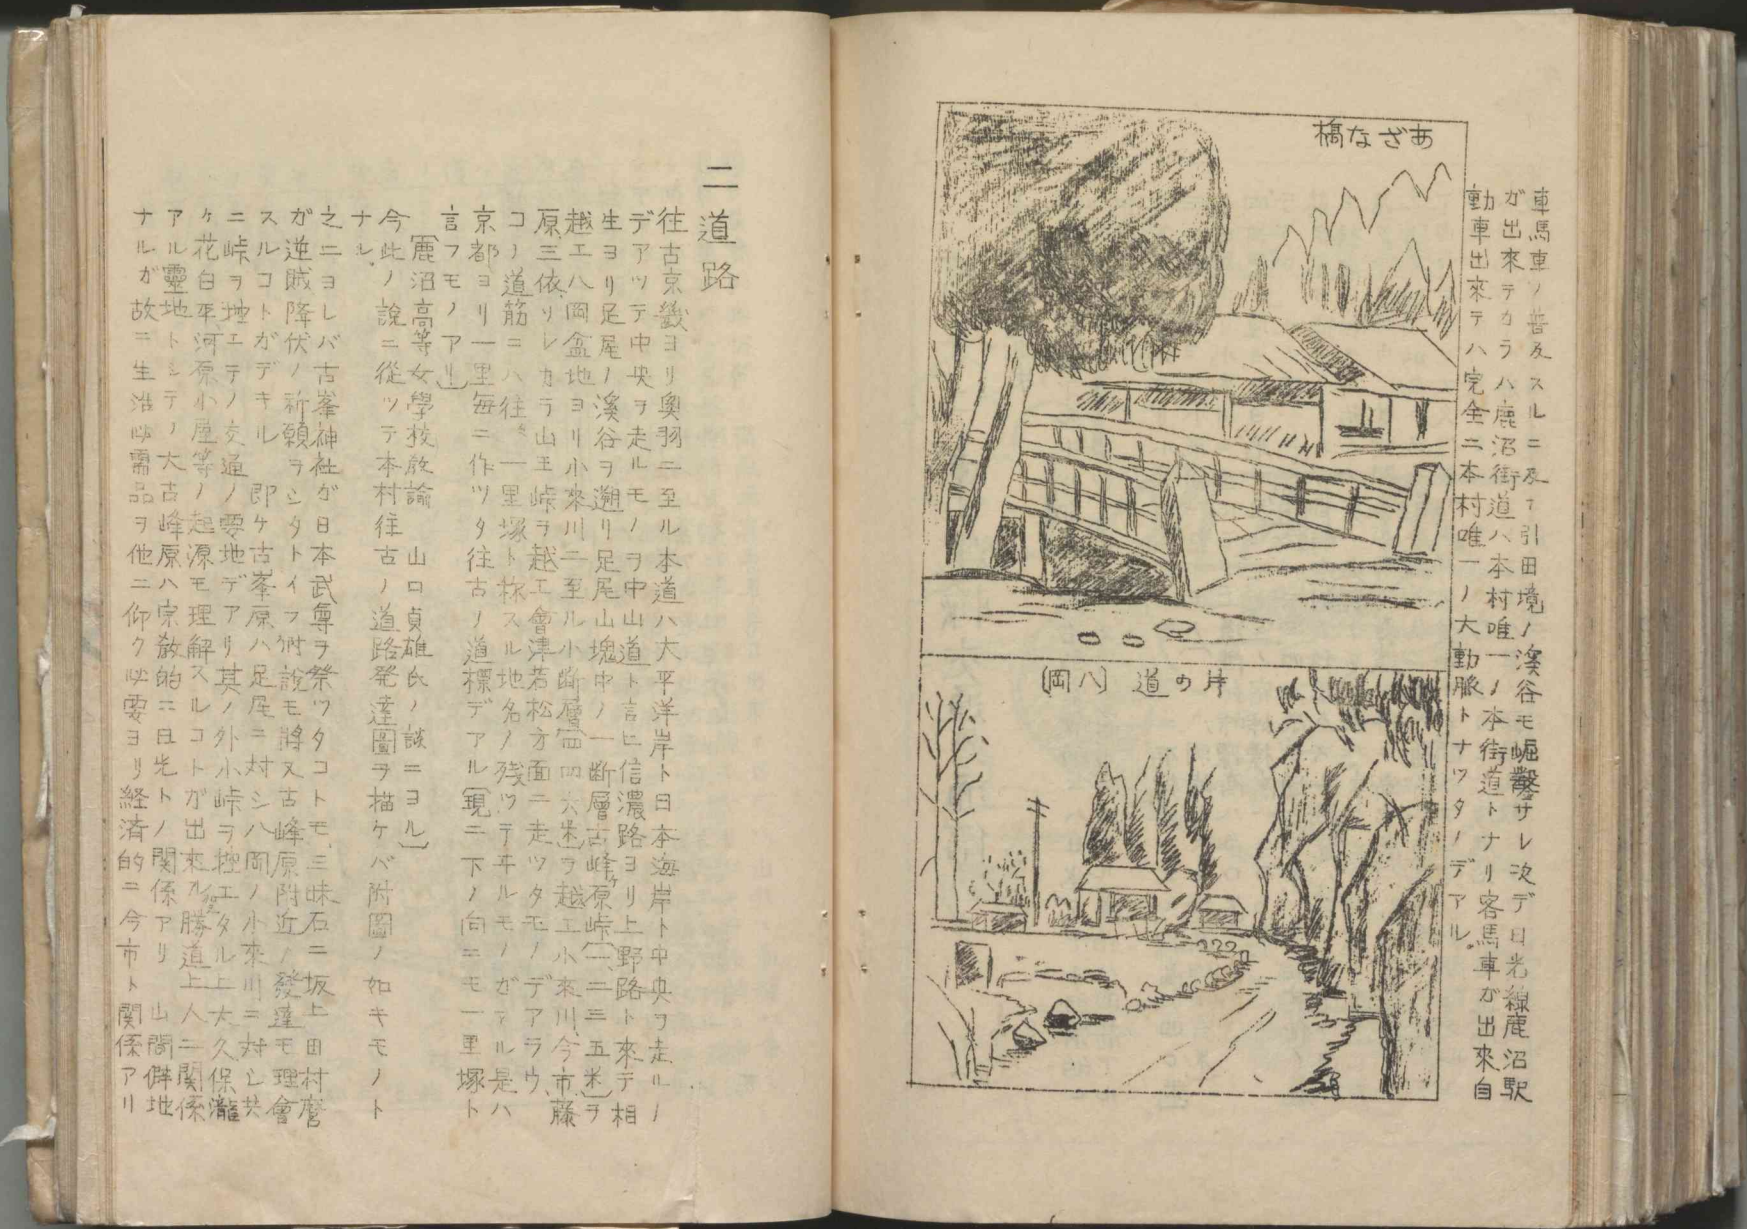 車馬車ノ普及スルニ及テ引田境ノ溪谷モ崛鑿サレ次デ日光線鹿沼駅
ガ出來テカラハ鹿沼街道ハ本村唯一ノ本街道トナリ客馬車ガ出來自
動車出來テハ完全ニ本村唯一ノ大動脈トナツタノデアル。
あざな橋
片の道 (八岡)
二 道路
往古京畿ヨリ奥羽ニ至ル本道ハ大平洋岸ト日本海岸ト中央ヲ走ルノ
デアツテ中央ヲ走ルモノヲ中山道ト言ヒ信濃路ヨリ上野路ト來テ相
生ヨリ足尾ノ溪谷ヲ遡リ足尾山塊中ノ一断層古峰ヶ原峠(一、二三五米)ヲ
越エ八岡盆地ヨリ小來川ニ至ル小断層(四四六米)ヲ越エ小來川、今市、藤
原、三依、リレカラ山王峠ヲ越エ會津若松方面ニ走ツタモノデアラウ、
コノ道筋ニハ往々一里塚ト稱スル地名ノ残ツテヰルモノガアル是ハ
京都ヨリ一里毎ニ作ツタ往古ノ道標デアル(現ニ下ノ向ニモ一里塚ト
言フモノアリ)
(鹿沼高等女學校教諭 山口貞雄氏ノ談ニヨル)
今此ノ說ニ從ツテ本村往古ノ道路発達圖ヲ描ケバ附圖ノ如キモノト
ナル。
之ニヨレバ古峯神社ガ日本武尊ヲ祭ツタコトモ、三昧石ニ坂上田村麿
ガ逆賊降伏ノ祈願ヲシタトイフ附說モ將又古峰原附近ノ發達モ理會
スルコトガデキル 即ケ古峯原ハ足尾ニ対シ八岡ノ小來川ニ対シ共
ニ峠ヲ地エテノ交通ノ要地デアリ其ノ外小峠ヲ極エタル上大久保瀧
ヶ花白平、河原小屋等ノ起源モ理解スルコトガ出來ル 勝道上人ニ関係
アル靈地トシテノ大古峰原ハ宗教的ニ日光トノ関係アリ 山間僻地
ナルガ故ニ生活必需品ヲ他ニ仰ク必要ヨリ経済的ニ今市ト関係アリ